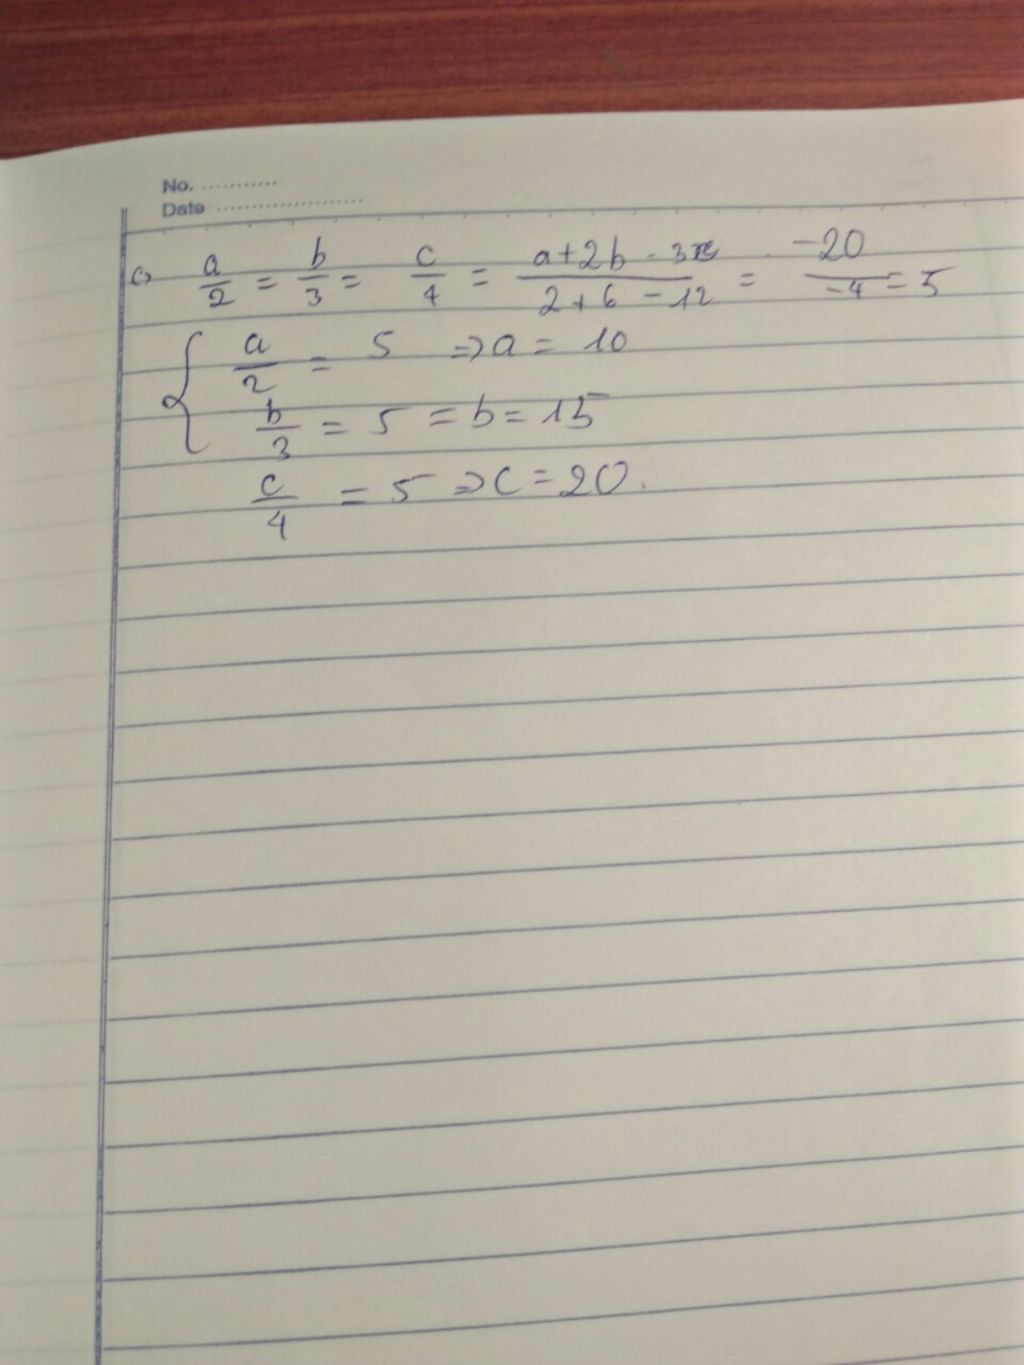 No. ............
Date ......................
c) a/2 = b/3 = c/4 = (a+2b-3c)/(2+6-12) = -20/-4 = 5
{ a/2 = 5 => a = 10
b/3 = 5 = b = 15
c/4 = 5 => c = 20.